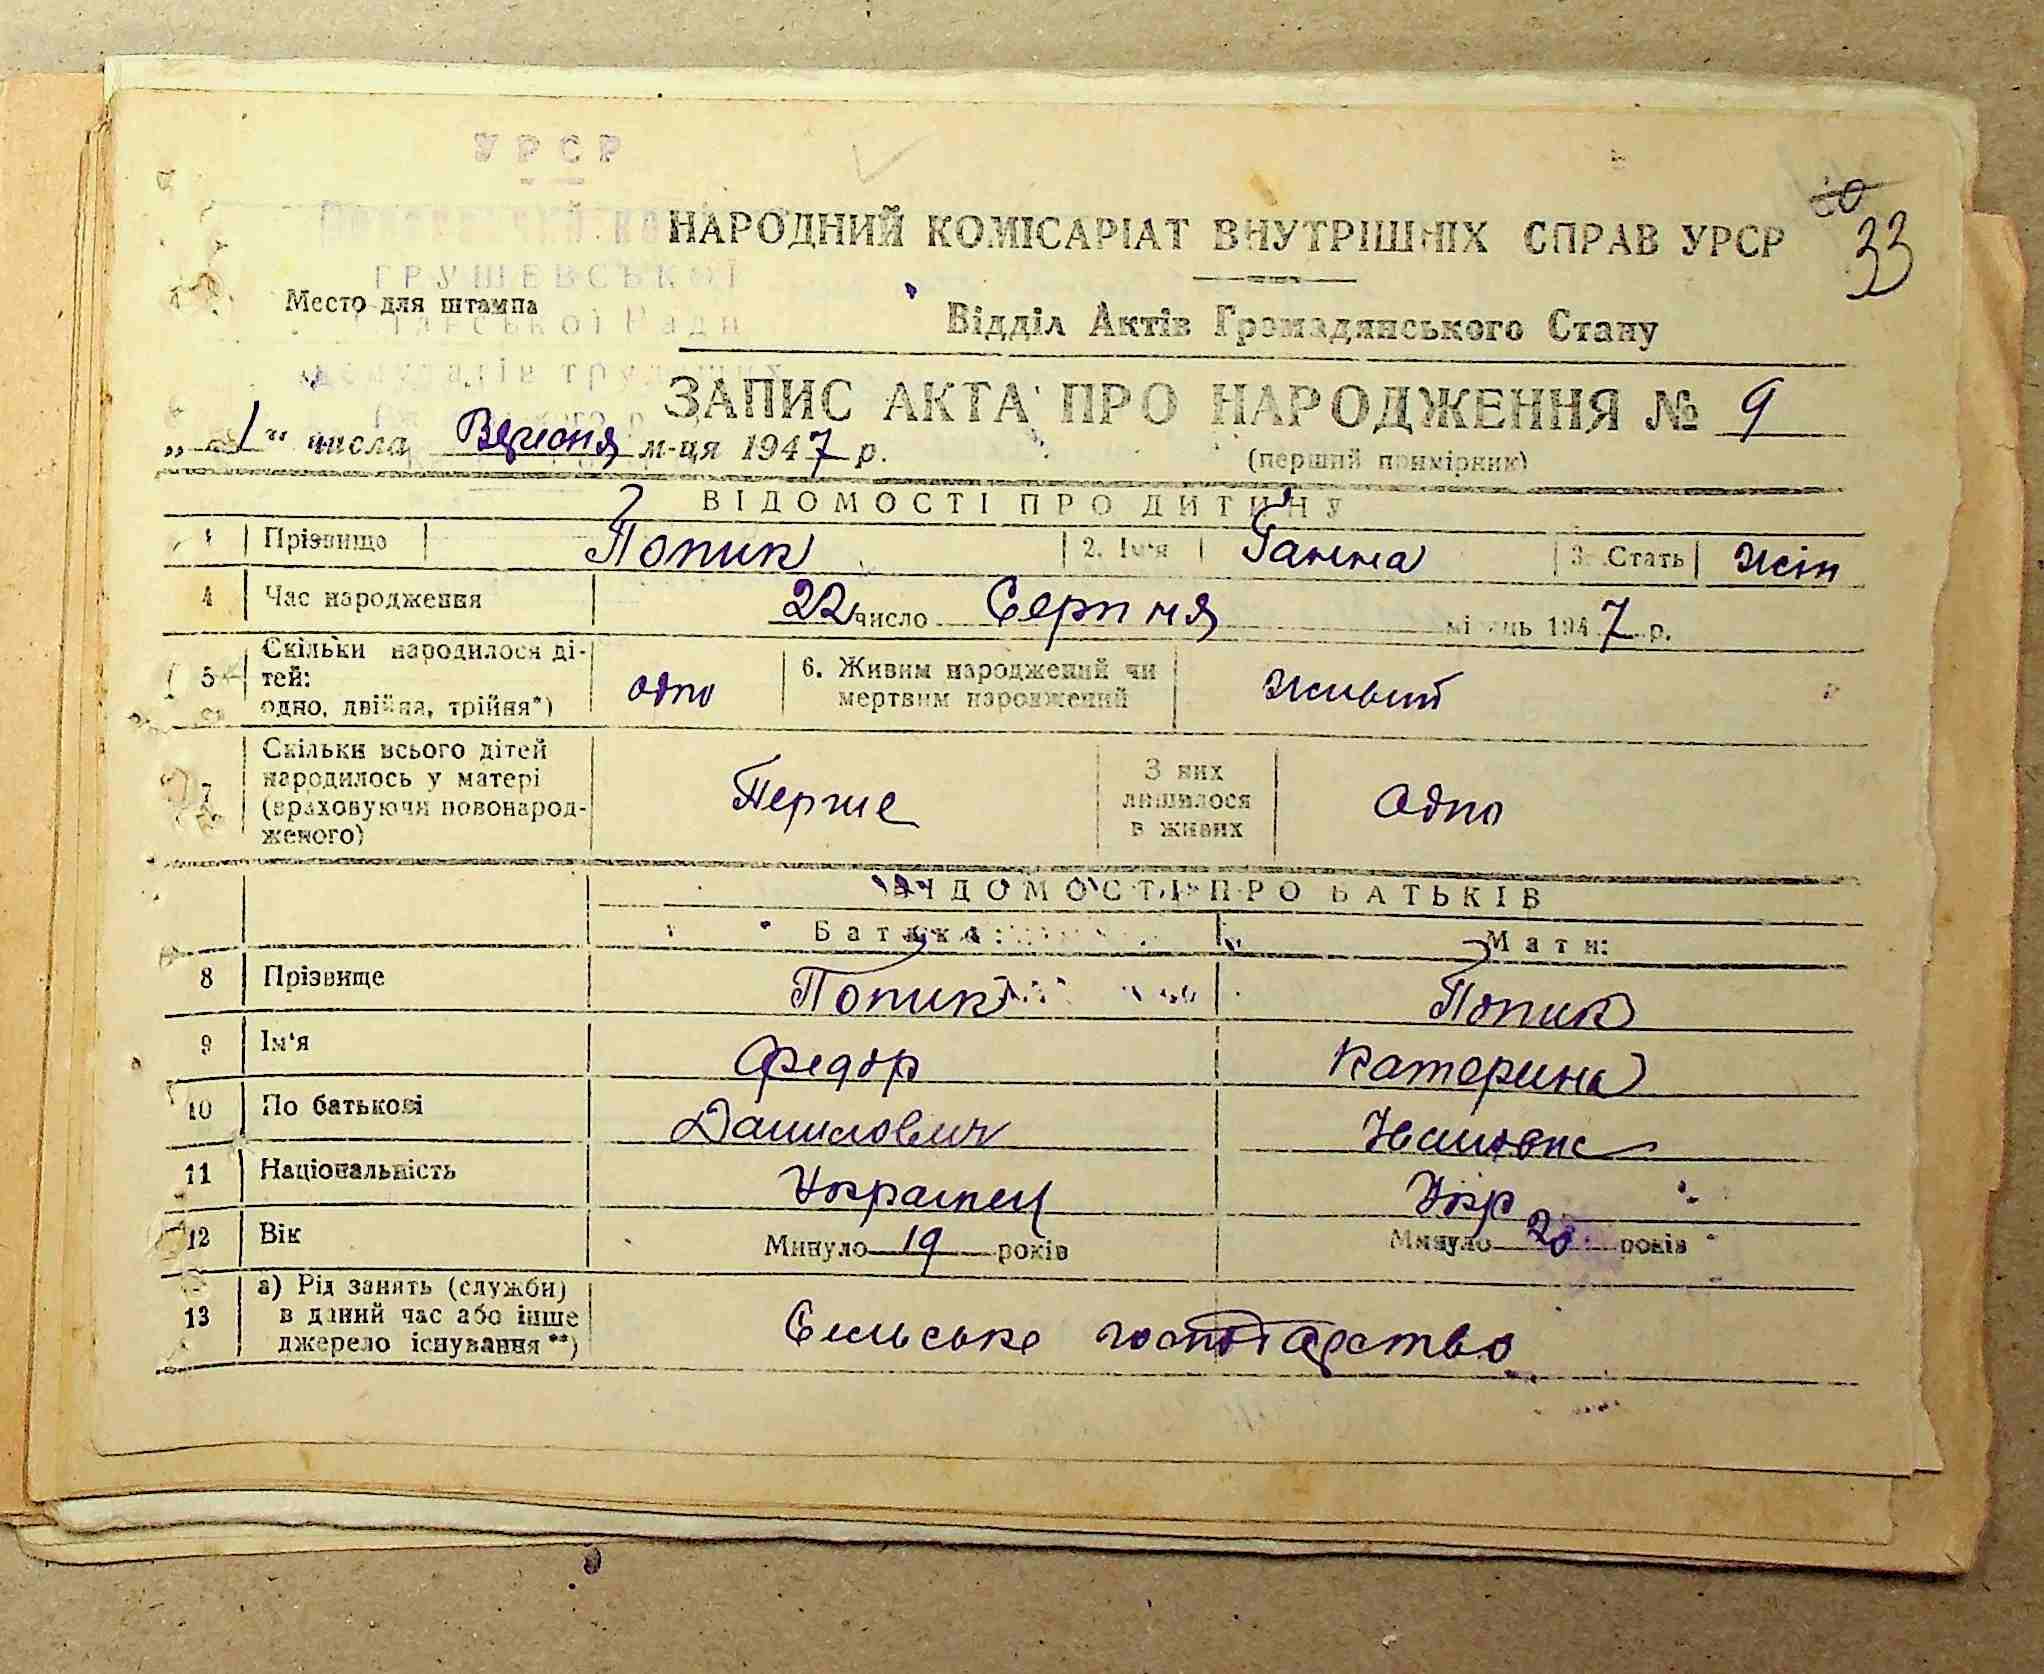 УРСР
20
33
НАРОДНИЙ КОМІСАРІАТ ВНУТРІШНІХ СПРАВ УРСР
ГРУШЕВСЬКОЇ
Место для штампа
Відділ Актів Громадянського Стану
ЗАПИС АКТА ПРО НАРОДЖЕННЯ № 9
„ 1 “ числа Вересня м-ця 1947 р.
(перший примірник)
ВІДОМОСТІ ПРО ДИТИНУ
1 Прізвище Попик 2. Ім'я Ганна 3. Стать жін
4 Час народження 22 число Серпня місяць 1947 р.
5 Скільки народилося ді-
тей:
одно, двійня, трійня*) одно 6. Живим народжений чи
мертвим народжений живий
7 Скільки всього дітей
народилось у матері
(враховуючи новонарод-
женого) Перше З них
лишилося
в живих одно
ВІДОМОСТІ ПРО БАТЬКІВ
Батька: Мати:
8 Прізвище Попик Попик
9 Ім'я Федор Катерина
10 По батькові Данилович
11 Національність Украінец Укр
12 Вік Минуло 19 років Минуло 20 років
13 а) Рід занять (служби)
в даний час або інше
джерело існування**) Сельське господарство